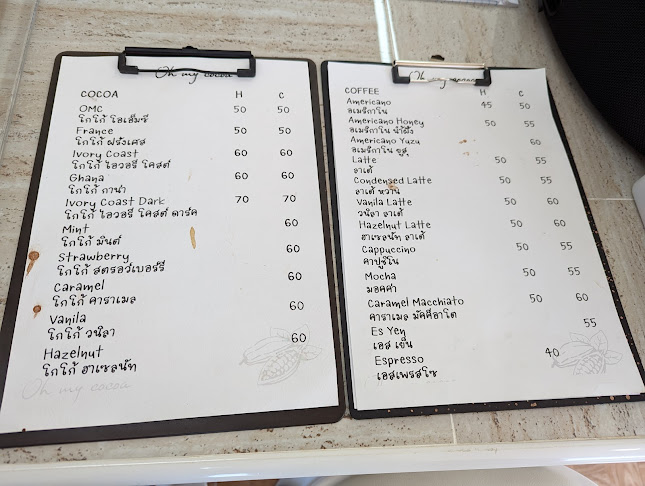 Oh my cocoa
COCOA H C
OMC 50 50
โกโก้ โอเอ็มซี
France 50 50
โกโก้ ฝรั่งเศส
Ivory Coast 60 60
โกโก้ ไอวอรี่ โคสต์
Ghana 60 60
โกโก้ กาน่า
Ivory Coast Dark 70 70
โกโก้ ไอวอรี่ โคสต์ ดาร์ค
Mint 60
โกโก้ มินต์
Strawberry 60
โกโก้ สตรอว์เบอร์รี่
Caramel 60
โกโก้ คาราเมล
Vanila 60
โกโก้ วนิลา
Hazelnut 60
โกโก้ ฮาเซลนัท
Oh my cocoa
Oh my
COFFEE H C
Americano 45 50
อเมริกาโน่
Americano Honey 50 55
อเมริกาโน่ น้ำผึ้ง
Americano Yuzu 60
อเมริกาโน่ ยูสุ
Latte 50 55
ลาเต้
Condensed Latte 50 55
ลาเต้ หวาน
Vanila Latte 50 60
วนิลา ลาเต้
Hazelnut Latte 50 60
ฮาเซลนัท ลาเต้
Cappuccino 50 55
คาปูชิโน
Mocha 50 55
มอคค่า
Caramel Macchiato 50 60
คาราเมล มัคคิอาโต
Es Yen 55
เอส เย็น
Espresso 40
เอสเพรสโซ